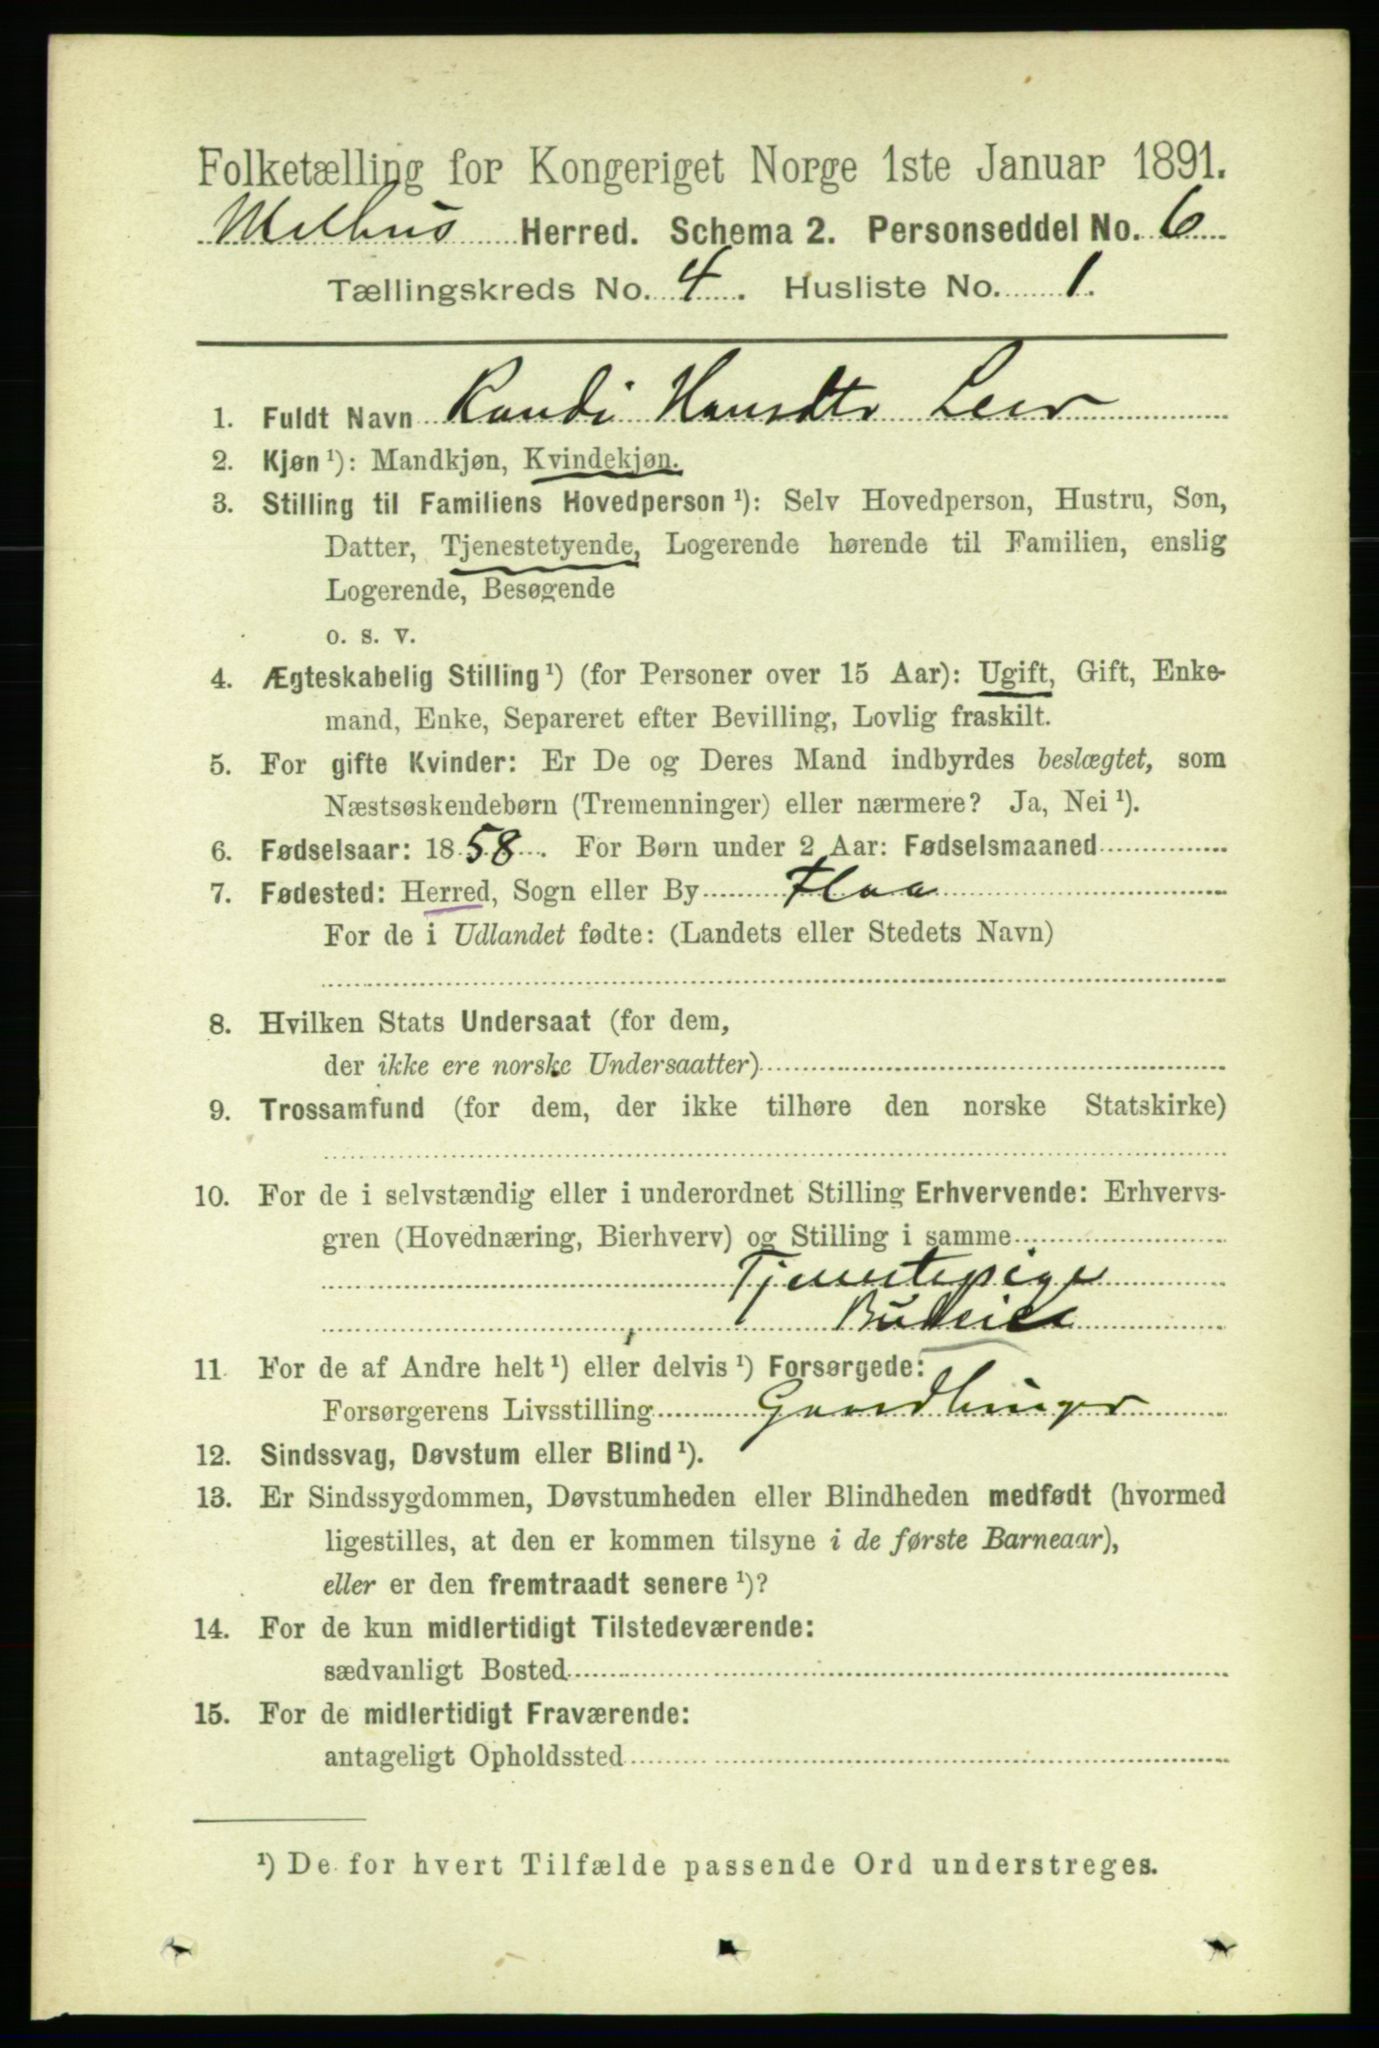 Folketælling for Kongeriget Norge 1ste Januar 1891.
Melhus Herred. Schema 2. Personseddel No. 6
Tællingskreds No. 4. Husliste No. 1.
1. Fuldt Navn Randi Hansdtr Leer
2. Kjøn ¹): Mandkjøn, Kvindekjøn.
3. Stilling til Familiens Hovedperson ¹): Selv Hovedperson, Hustru, Søn,
Datter, Tjenestetyende, Logerende hørende til Familien, enslig
Logerende, Besøgende
o. s. v.
4. Ægteskabelig Stilling ¹) (for Personer over 15 Aar): Ugift, Gift, Enke-
mand, Enke, Separeret efter Bevilling, Lovlig fraskilt.
5. For gifte Kvinder: Er De og Deres Mand indbyrdes beslægtet, som
Næstsøskendebørn (Tremenninger) eller nærmere? Ja, Nei ¹).
6. Fødselsaar: 1858. For Børn under 2 Aar: Fødselsmaaned
7. Fødested: Herred, Sogn eller By Flaa
For de i Udlandet fødte: (Landets eller Stedets Navn)
8. Hvilken Stats Undersaat (for dem,
der ikke ere norske Undersaatter)
9. Trossamfund (for dem, der ikke tilhøre den norske Statskirke)
10. For de i selvstændig eller i underordnet Stilling Erhvervende: Erhvervs-
gren (Hovednæring, Bierhverv) og Stilling i samme
Tjenestepige
Budeie
11. For de af Andre helt ¹) eller delvis ¹) Forsørgede:
Forsørgerens Livsstilling Gaardbruger
12. Sindssvag, Døvstum eller Blind ¹).
13. Er Sindssygdommen, Døvstumheden eller Blindheden medfødt (hvormed
ligestilles, at den er kommen tilsyne i de første Barneaar),
eller er den fremtraadt senere ¹)?
14. For de kun midlertidigt Tilstedeværende:
sædvanligt Bosted
15. For de midlertidigt Fraværende:
antageligt Opholdssted
¹) De for hvert Tilfælde passende Ord understreges.